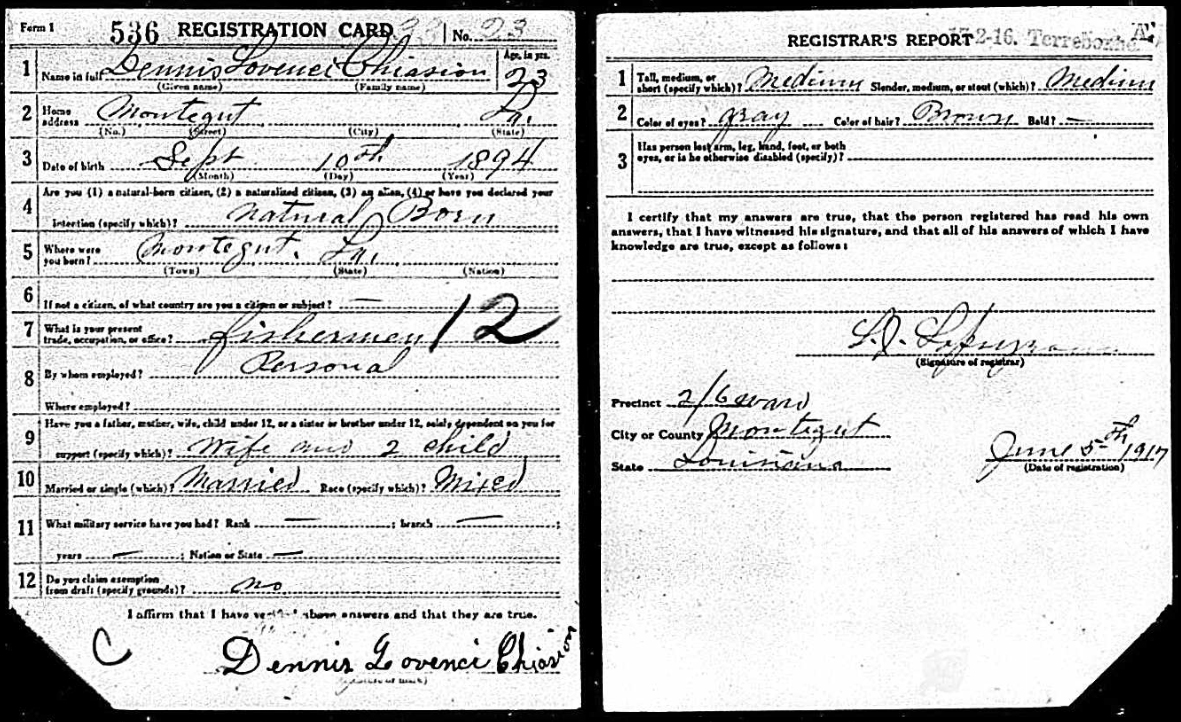 Form 1 536 REGISTRATION CARD No. 23
1 Name in full Dennis Lovenci Chiasion Age, in yrs. 23
(Given name) (Family name)
2 Home address Montegut La.
(No.) (Street) (City) (State)
3 Date of birth Sept 10th 1894
(Month) (Day) (Year)
4 Are you (1) a natural-born citizen, (2) a naturalized citizen, (3) an alien, (4) or have you declared your
intention (specify which)? Natural Born
5 Where were you born? Montegut. La.
(Town) (State) (Nation)
6 If not a citizen, of what country are you a citizen or subject? —
7 What is your present trade, occupation, or office? fishermen 12
8 By whom employed? Personal
Where employed?
9 Have you a father, mother, wife, child under 12, or a sister or brother under 12, solely dependent on you for
support (specify which)? Wife and 2 child
10 Married or single (which)? Married Race (specify which)? Mixed
11 What military service have you had? Rank — ; branch — ;
years — ; Nation or State —
12 Do you claim exemption from draft (specify grounds)? no
I affirm that I have verified above answers and that they are true.
C Dennis Lovenci Chiasion
(Signature or mark)
REGISTRAR'S REPORT 17-2-16. Terrebonne
1 Tall, medium, or short (specify which)? Medium Slender, medium, or stout (which)? Medium
2 Color of eyes? gray Color of hair? Brown Bald? —
3 Has person lost arm, leg, hand, foot, or both
eyes, or is he otherwise disabled (specify)?
I certify that my answers are true, that the person registered has read his own
answers, that I have witnessed his signature, and that all of his answers of which I have
knowledge are true, except as follows:
(Signature of registrar)
Precinct 2/6 ward
City or County Montegut
State Louisiana June 5th 1917
(Date of registration)